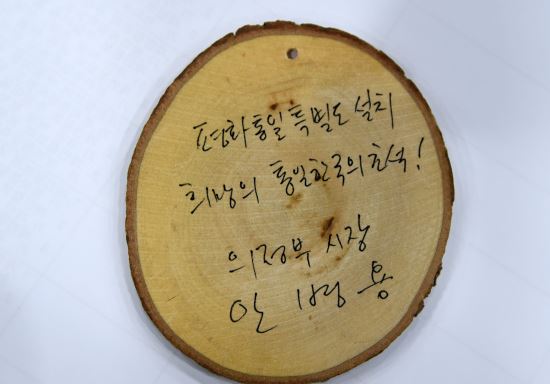 평화통일특별도 설치
희망의 통일한국의 초석!
의정부 시장
안 병 용